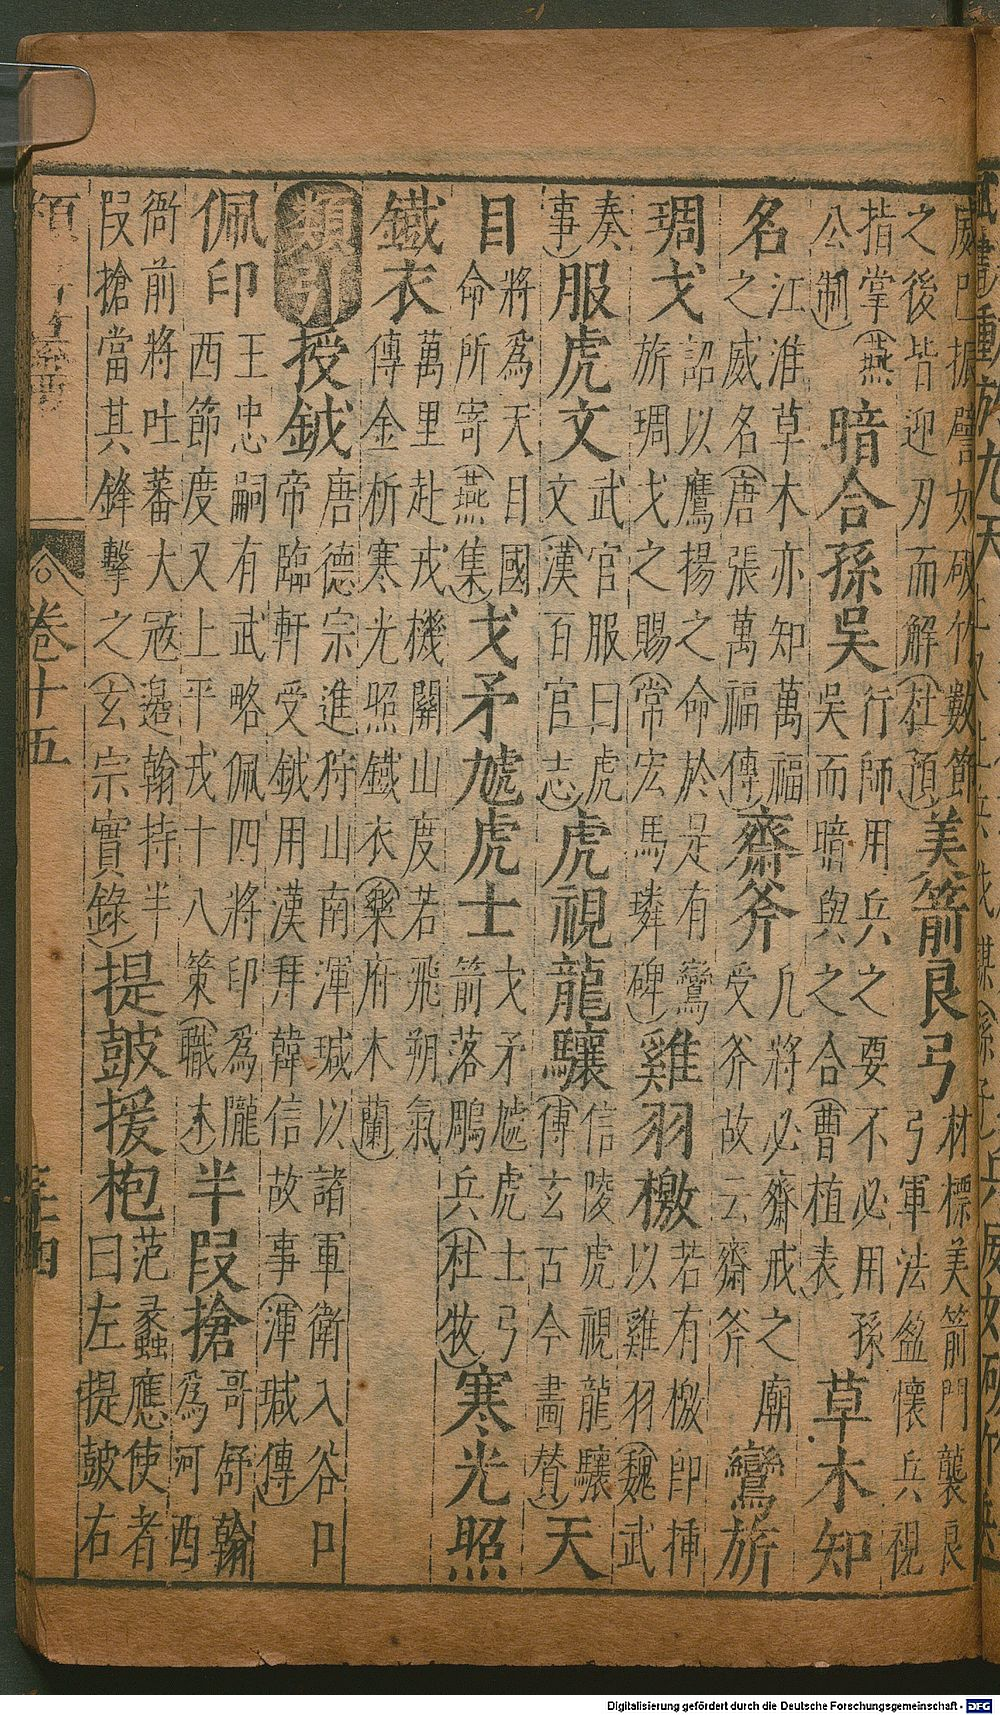 威已振譬如破竹數節之後皆迎刃而解(杜預)美箭良弓材標美箭門襲良弓軍法盈懷兵視
指掌(燕公制)暗合孫吳行師用兵之要不必用孫吳而暗與之合(曹植表)草木知
名江淮草木亦知萬福之威名(唐張萬福傳)齋斧凡將必齋戒之廟受斧故云齋斧鸞旂
琱戈詔以鷹揚之命於是有鸞旂琱戈之賜(常宏馬璘碑)雞羽檄若有檄印揷以雞羽(魏武
奏事)服虎文武官服曰虎文(漢百官志)虎視龍驤信陵虎視龍驤(傅玄古今畫贊)天
目將為天目國命所寄(燕集)戈矛虓虎士戈矛虓虎士弓箭落鵰兵(杜牧)寒光照
鐵衣萬里赴戎機關山度若飛朔氣傳金柝寒光照鐵衣(樂府木蘭)
類引授鉞唐德宗進狩山南渾瑊以諸軍衛入谷口帝臨軒受鉞用漢拜韓信故事(渾瑊傳)
佩印王忠嗣有武略佩四將印為隴西節度又上平戎十八策(職林)半叚搶哥舒翰為河西
衙前將吐蕃大冦邉翰持半叚搶當其鋒擊之(玄宗實錄)提皷援枹范蠡應使者曰左提皷右
卷十五
Digitalisierung gefördert durch die Deutsche Forschungsgemeinschaft - DFG